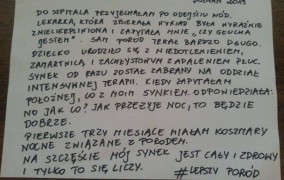 POZNAŃ 2013
DO SZPITALA PRZYJECHAŁAM PO ODEJŚCIU WÓD.
LEKARKA, KTÓRA ZBIERAŁA WYWIAD BYŁA WYRAŹNIE
ZNIECIERPLIWIONA I ZAPYTAŁA MNIE „CZY GŁUCHA
JESTEM". SAM PORÓD TRWAŁ BARDZO DŁUGO.
DZIECKO URODZIŁO SIĘ Z NIEDOTLENIENIEM,
ZAMARTWICĄ I ZACHŁYSTOWYM ZAPALENIEM PŁUC.
SYNEK OD RAZU ZOSTAŁ ZABRANY NA ODDZIAŁ
INTENSYWNEJ TERAPII. KIEDY ZAPYTAŁAM
POŁOŻNEJ, CO Z MOIM SYNKIEM. ODPOWIEDZIAŁA:
NO JAK CO? JAK PRZEŻYJE NOC, TO BĘDZIE
DOBRZE.
PIERWSZE TRZY MIESIĄCE MIAŁAM KOSZMARY
NOCNE ZWIĄZANE Z PORODEM.
NA SZCZĘŚCIE MÓJ SYNEK JEST CAŁY I ZDROWY
I TYLKO TO SIĘ LICZY. #LEPSZY PORÓD